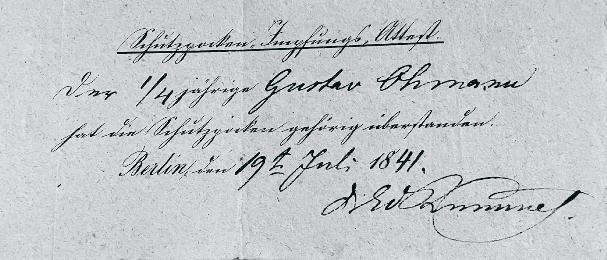 Schutzpocken-Impfungs-Attest.
Der 1/4 jährige Gustav Ohmann
hat die Schutzpocken gehörig überstanden.
Berlin, den 19t Juli 1841.